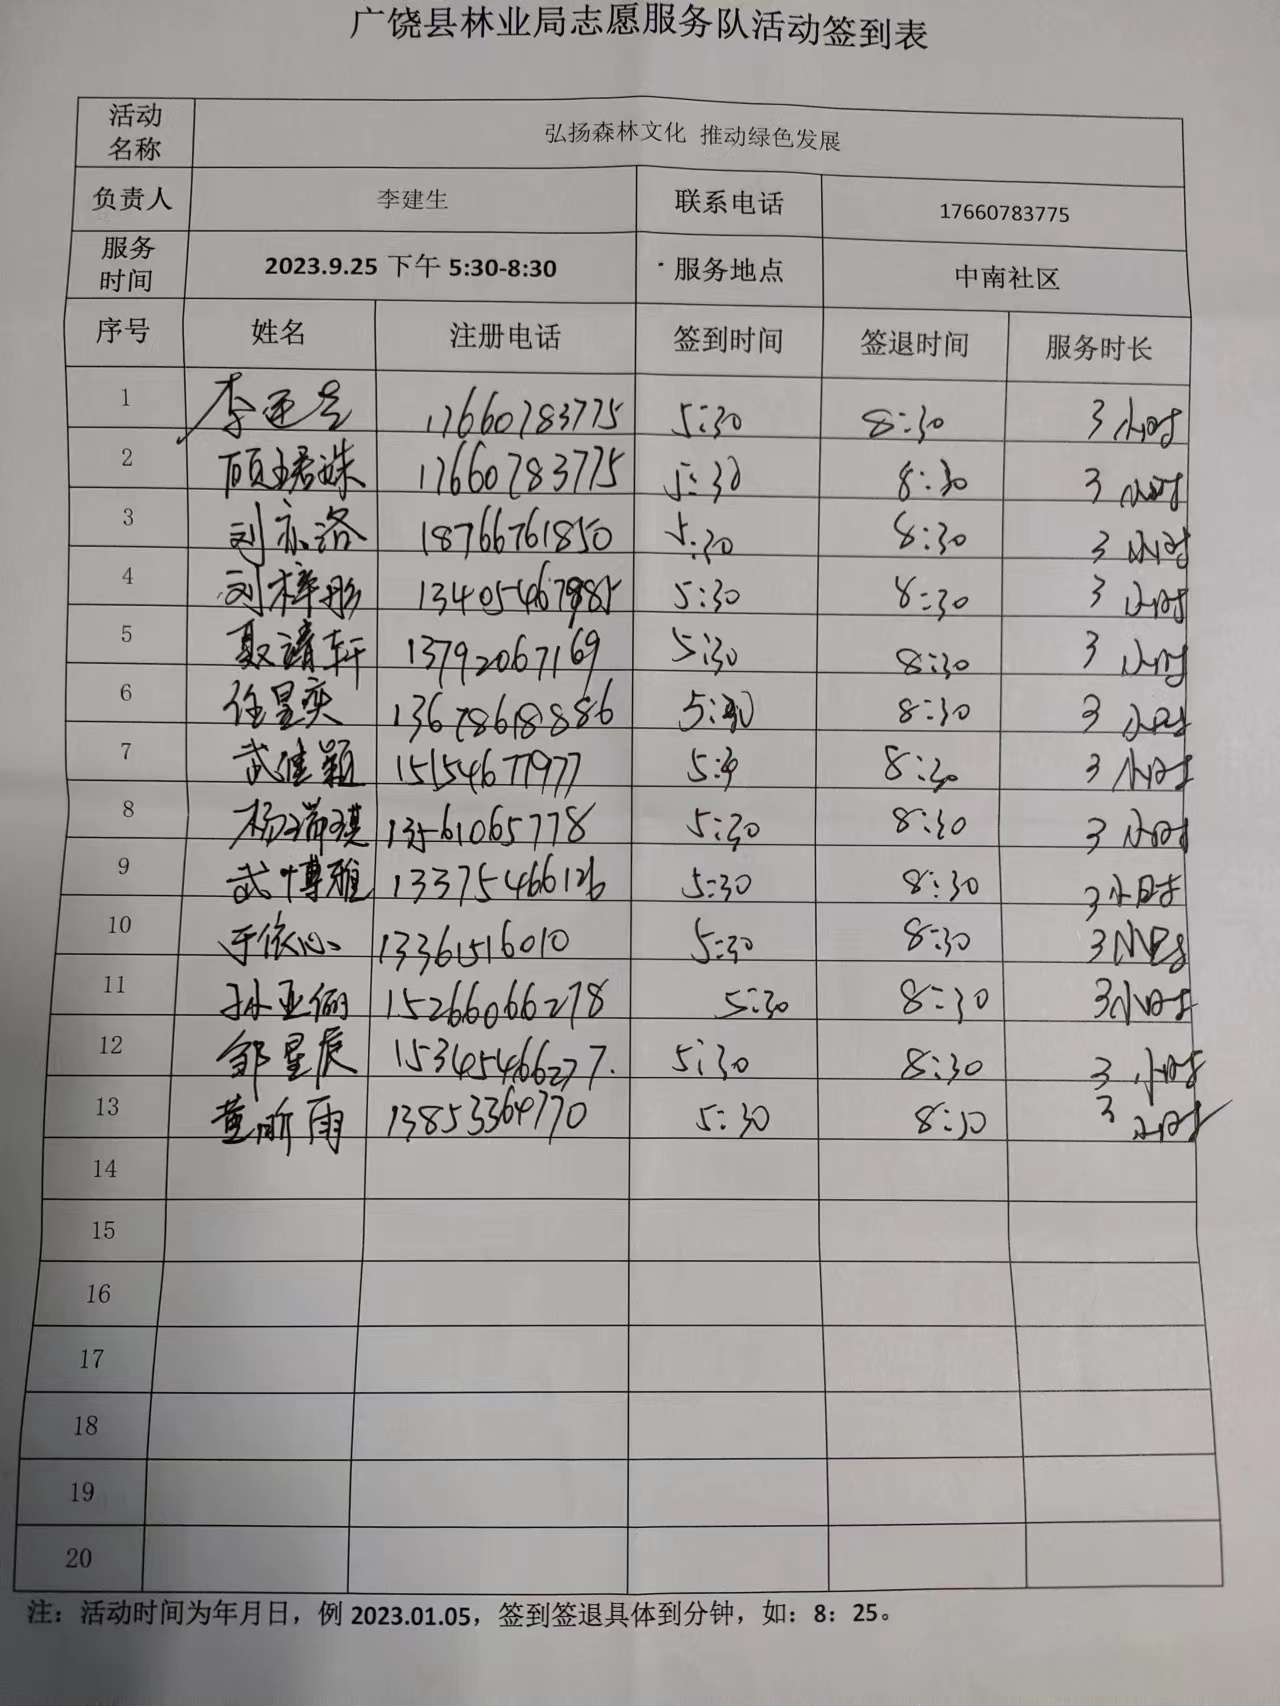 广饶县林业局志愿服务队活动签到表
活动名称 弘扬森林文化 推动绿色发展
负责人 李建生 联系电话 17660783775
服务时间 2023.9.25 下午 5:30-8:30 服务地点 中南社区
序号 姓名 注册电话 签到时间 签退时间 服务时长
1 李建生 17660783775 5:30 8:30 3小时
2 17660783775 5:30 8:30 3小时
3 刘亦洛 18766761850 5:30 8:30 3小时
4 刘梓彤 5:30 8:30 3小时
5 聂靖轩 13792067169 5:30 8:30 3小时
6 任星奕 13678618886 5:30 8:30 3小时
7 武佳颖 15154677977 8:30 3小时
8 杨瑞琪 13561065778 5:30 8:30 3小时
9 武博雅 13375466126 5:30 8:30 3小时
10 于依心 13361516010 5:30 8:30 3小时
11 孙亚俪 15266066278 5:30 8:30 3小时
12 邹星辰 15345466277. 5:30 8:30 3小时
13 黄昕雨 13853364770 5:30 8:30 3小时
14
15
16
17
18
19
20
注：活动时间为年月日，例 2023.01.05，签到签退具体到分钟，如：8：25。